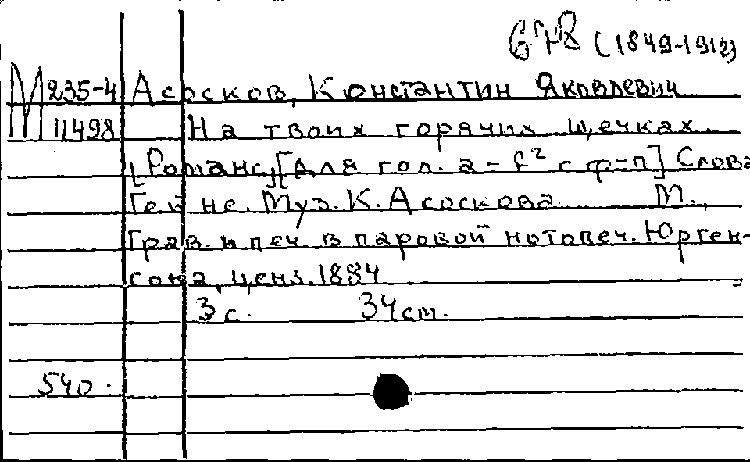 678 (1849-1912)
М 235-4 Асосков, Константин Яковлевич
11498 На твоих горячих щечках
[Романс] [Для гол. a-f² с ф-п] Слова
Гейне. Муз. К. Асоскова М.,
Грав. и печ. в паровой нотопеч. Юрген-
сона, ценз. 1884
3 с. 34 см.
540.